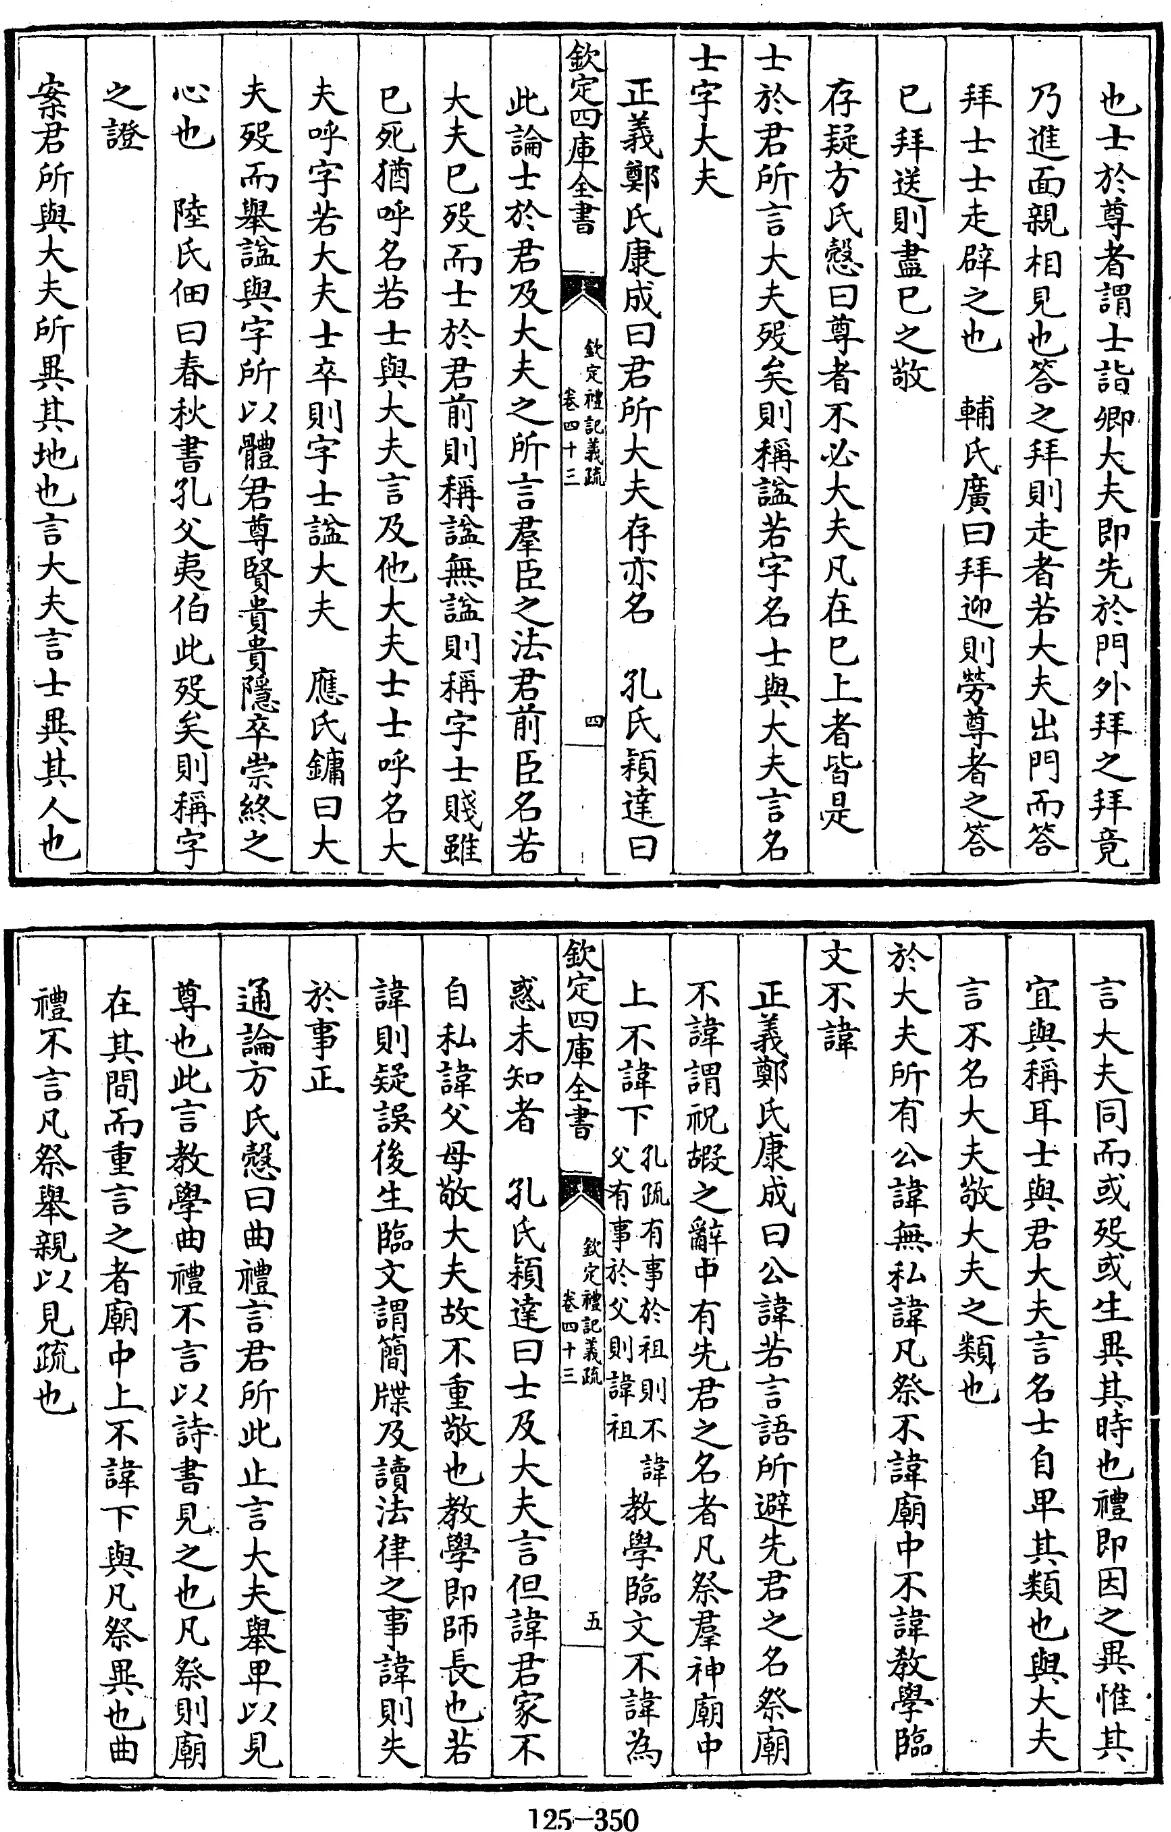 也士於尊者謂士詣卿大夫即先於門外拜之拜竟
乃進面親相見也答之拜則走者若大夫出門而答
拜士士走辟之也　輔氏廣曰拜迎則勞尊者之答
已拜送則盡已之敬
存疑方氏慤曰尊者不必大夫凡在已上者皆是
士於君所言大夫歿矣則稱諡若字名士與大夫言名
士字大夫
正義鄭氏康成曰君所大夫存亦名　孔氏穎達曰
欽定四庫全書
欽定禮記義疏
卷四十三
四
此論士於君及大夫之所言羣臣之法君前臣名若
大夫已歿而士於君前則稱諡無諡則稱字士賤雖
已死猶呼名若士與大夫言及他大夫士士呼名大
夫呼字若大夫士卒則字士諡大夫　應氏鏞曰大
夫歿而舉諡與字所以體君尊賢貴貴隱卒崇終之
心也　陸氏佃曰春秋書孔父夷伯此歿矣則稱字
之證
案君所與大夫所異其地也言大夫言士異其人也
言大夫同而或歿或生異其時也禮即因之異惟其
宜與稱耳士與君大夫言名士自卑其類也與大夫
言不名大夫敬大夫之類也
於大夫所有公諱無私諱凡祭不諱廟中不諱教學臨
文不諱
正義鄭氏康成曰公諱若言語所避先君之名祭廟
不諱謂祝嘏之辭中有先君之名者凡祭羣神廟中
上不諱下孔疏有事於祖則不諱父有事於父則諱祖教學臨文不諱為
欽定四庫全書
欽定禮記義疏
卷四十三
五
惑未知者　孔氏穎達曰士及大夫言但諱君家不
自私諱父母敬大夫故不重敬也教學即師長也若
諱則疑誤後生臨文謂簡牒及讀法律之事諱則失
於事正
通論方氏慤曰曲禮言君所此止言大夫舉卑以見
尊也此言教學曲禮不言以詩書見之也凡祭則廟
在其間而重言之者廟中上不諱下與凡祭異也曲
禮不言凡祭舉親以見疏也
125-350